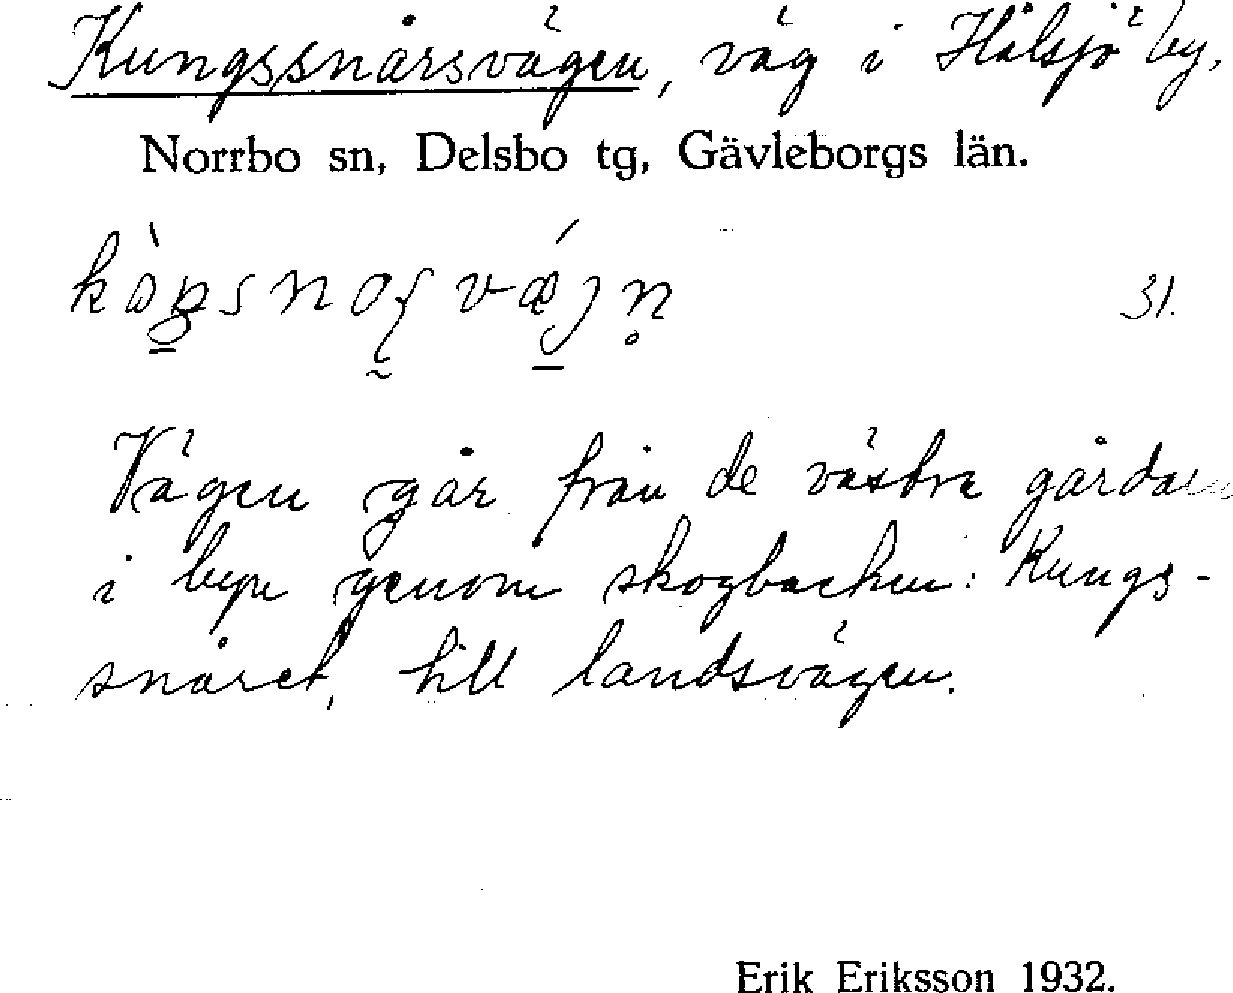 Kungssnårsvägen, väg i Hålsjö by,
Norrbo sn, Delsbo tg, Gävleborgs län.
31.
Vägen går från de västra gårdarna
i byn genom skogbacken: Kungs-
snåret, till landsvägen.
Erik Eriksson 1932.